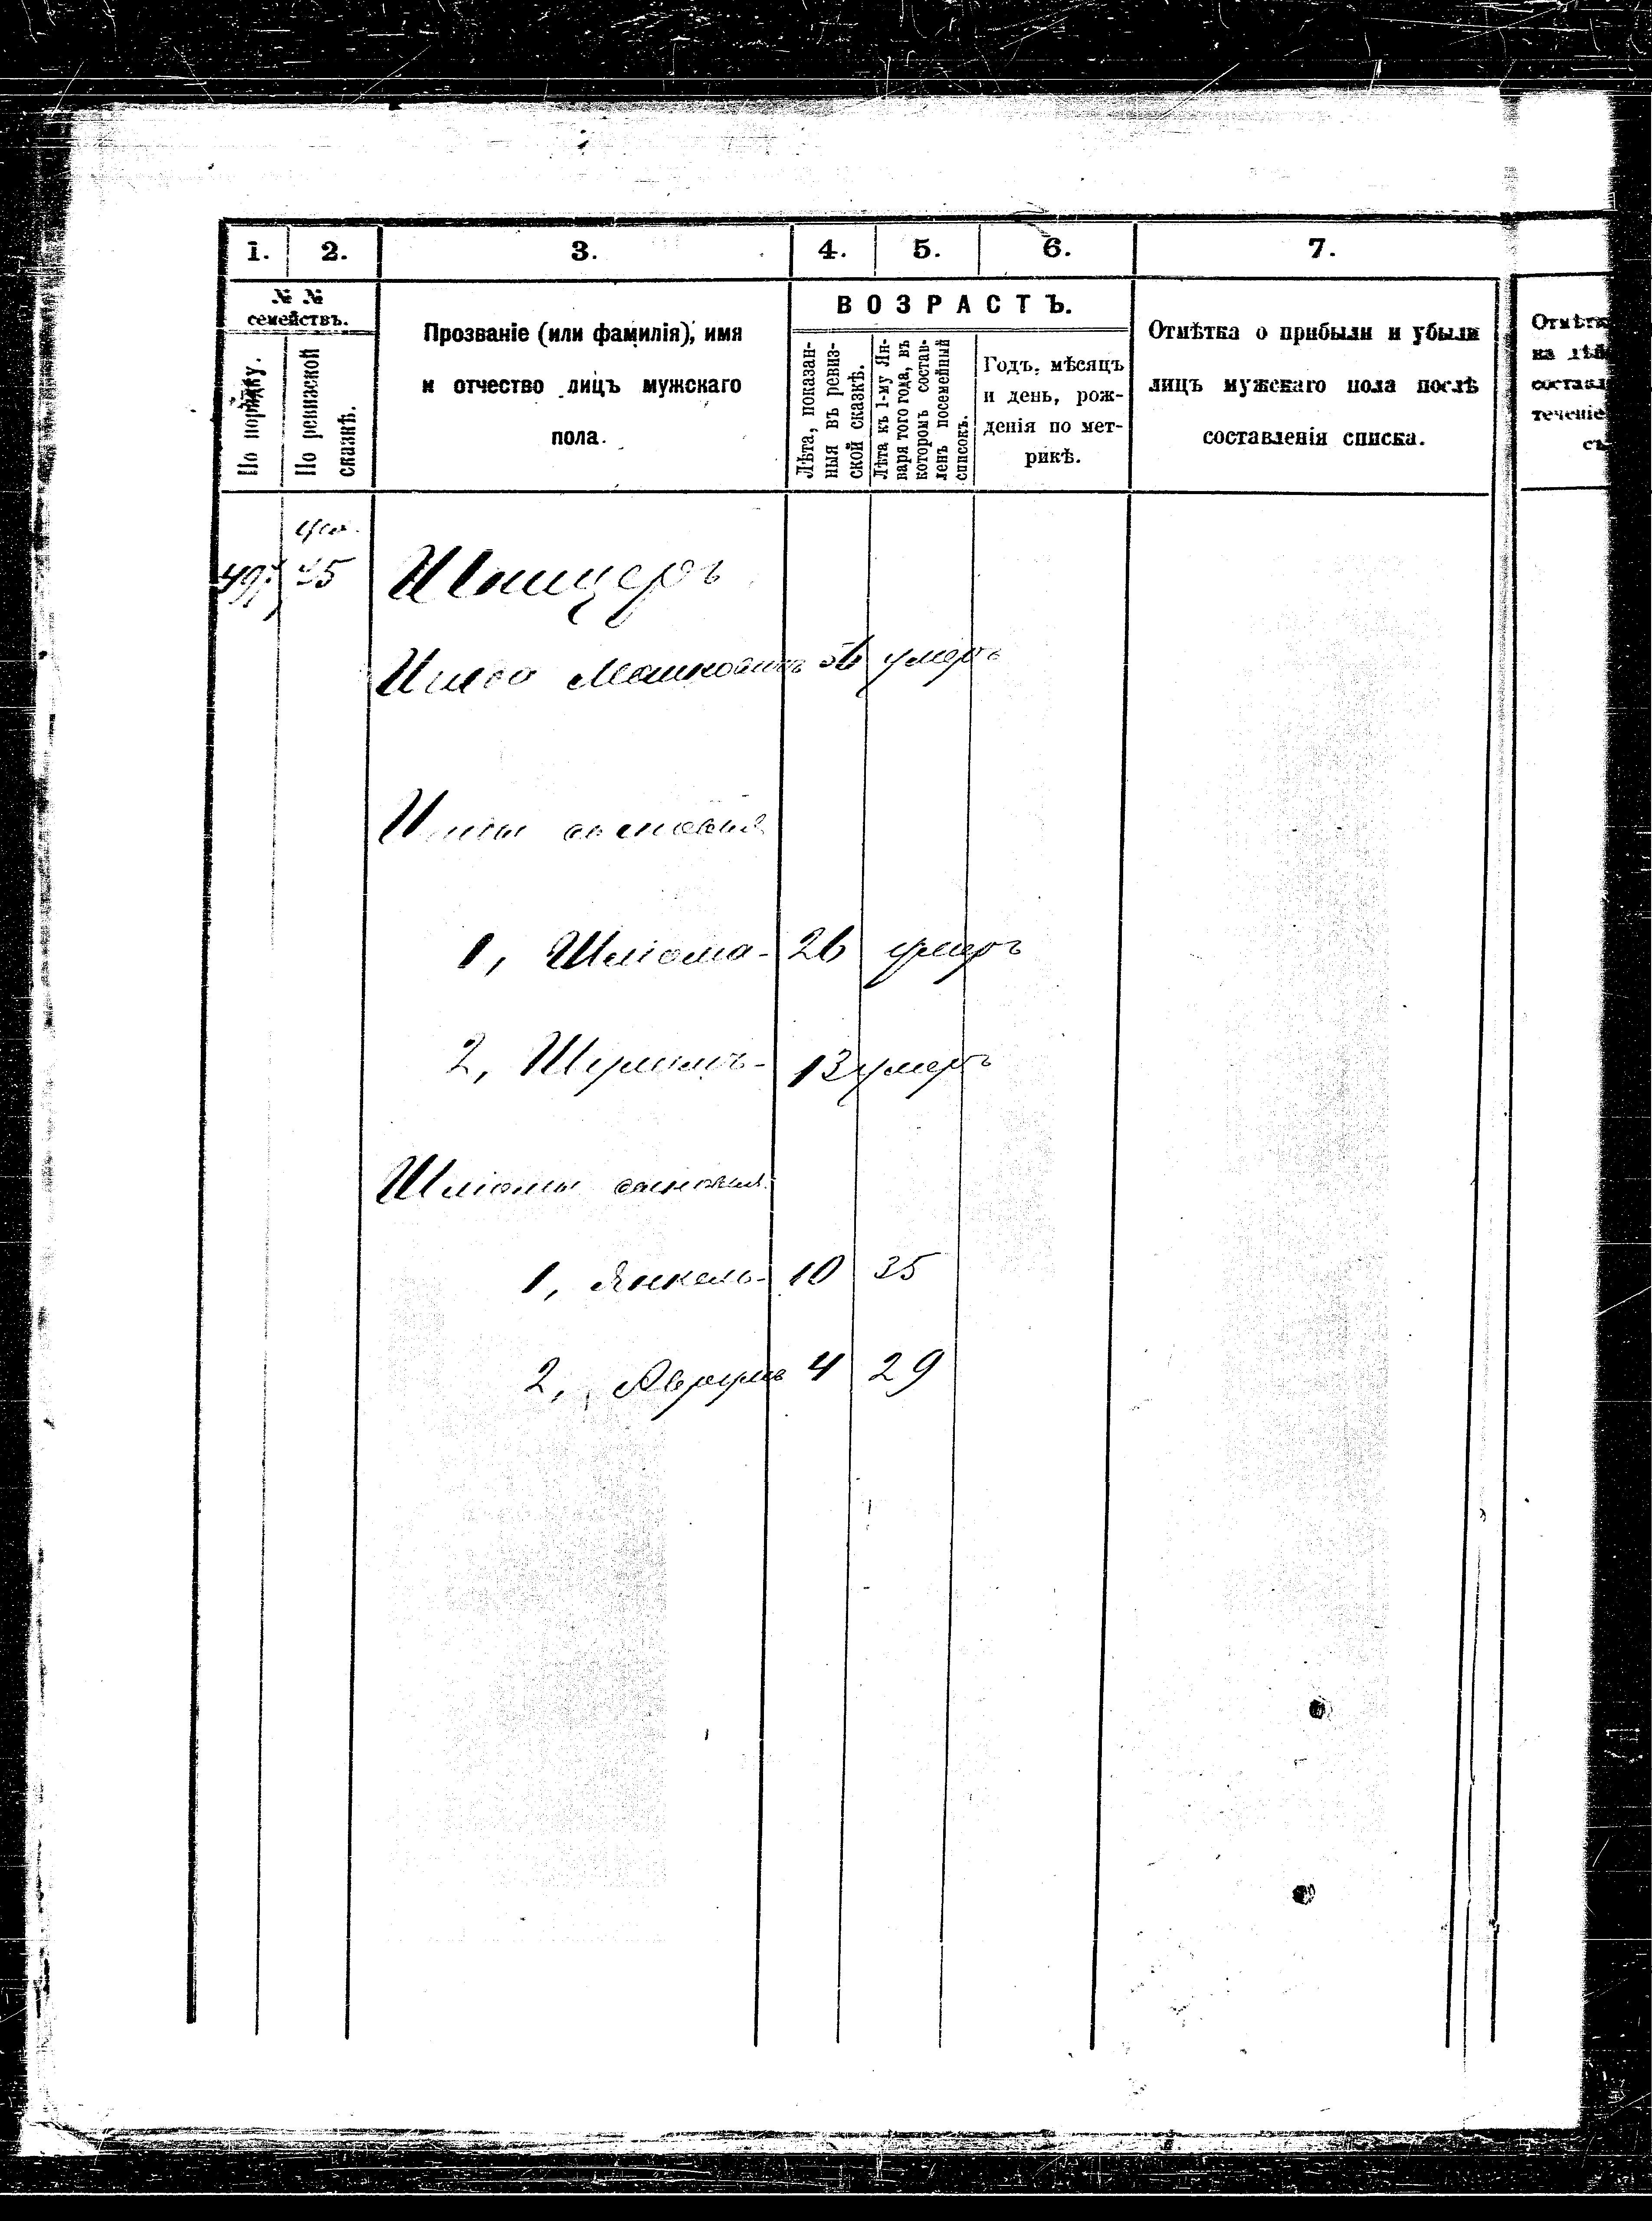 1. 2. 3. 4. 5. 6. 7.
№ №
семействъ.
По порядку.
По ревизской
сказкѣ.
Прозваніе (или фамилія), имя
и отчество лицъ мужскаго
пола.
ВОЗРАСТЪ.
Лѣта, показан-
ныя въ ревиз-
ской сказкѣ.
Лѣта къ 1-му Ян-
варя того года, въ
которомъ состав-
ленъ посемейный
списокъ.
Годъ, мѣсяцъ
и день, рож-
денія по мет-
рикѣ.
Отмѣтка о прибыли и убыли
лицъ мужскаго пола послѣ
составленія списка.
Шницеръ
Мошковичъ 56 умеръ
сыновья
1, Шліома - 26 умеръ
2, 13 умеръ
Шліомы сыновья
1, Янкель - 10 35
2, Аврумъ 4 29